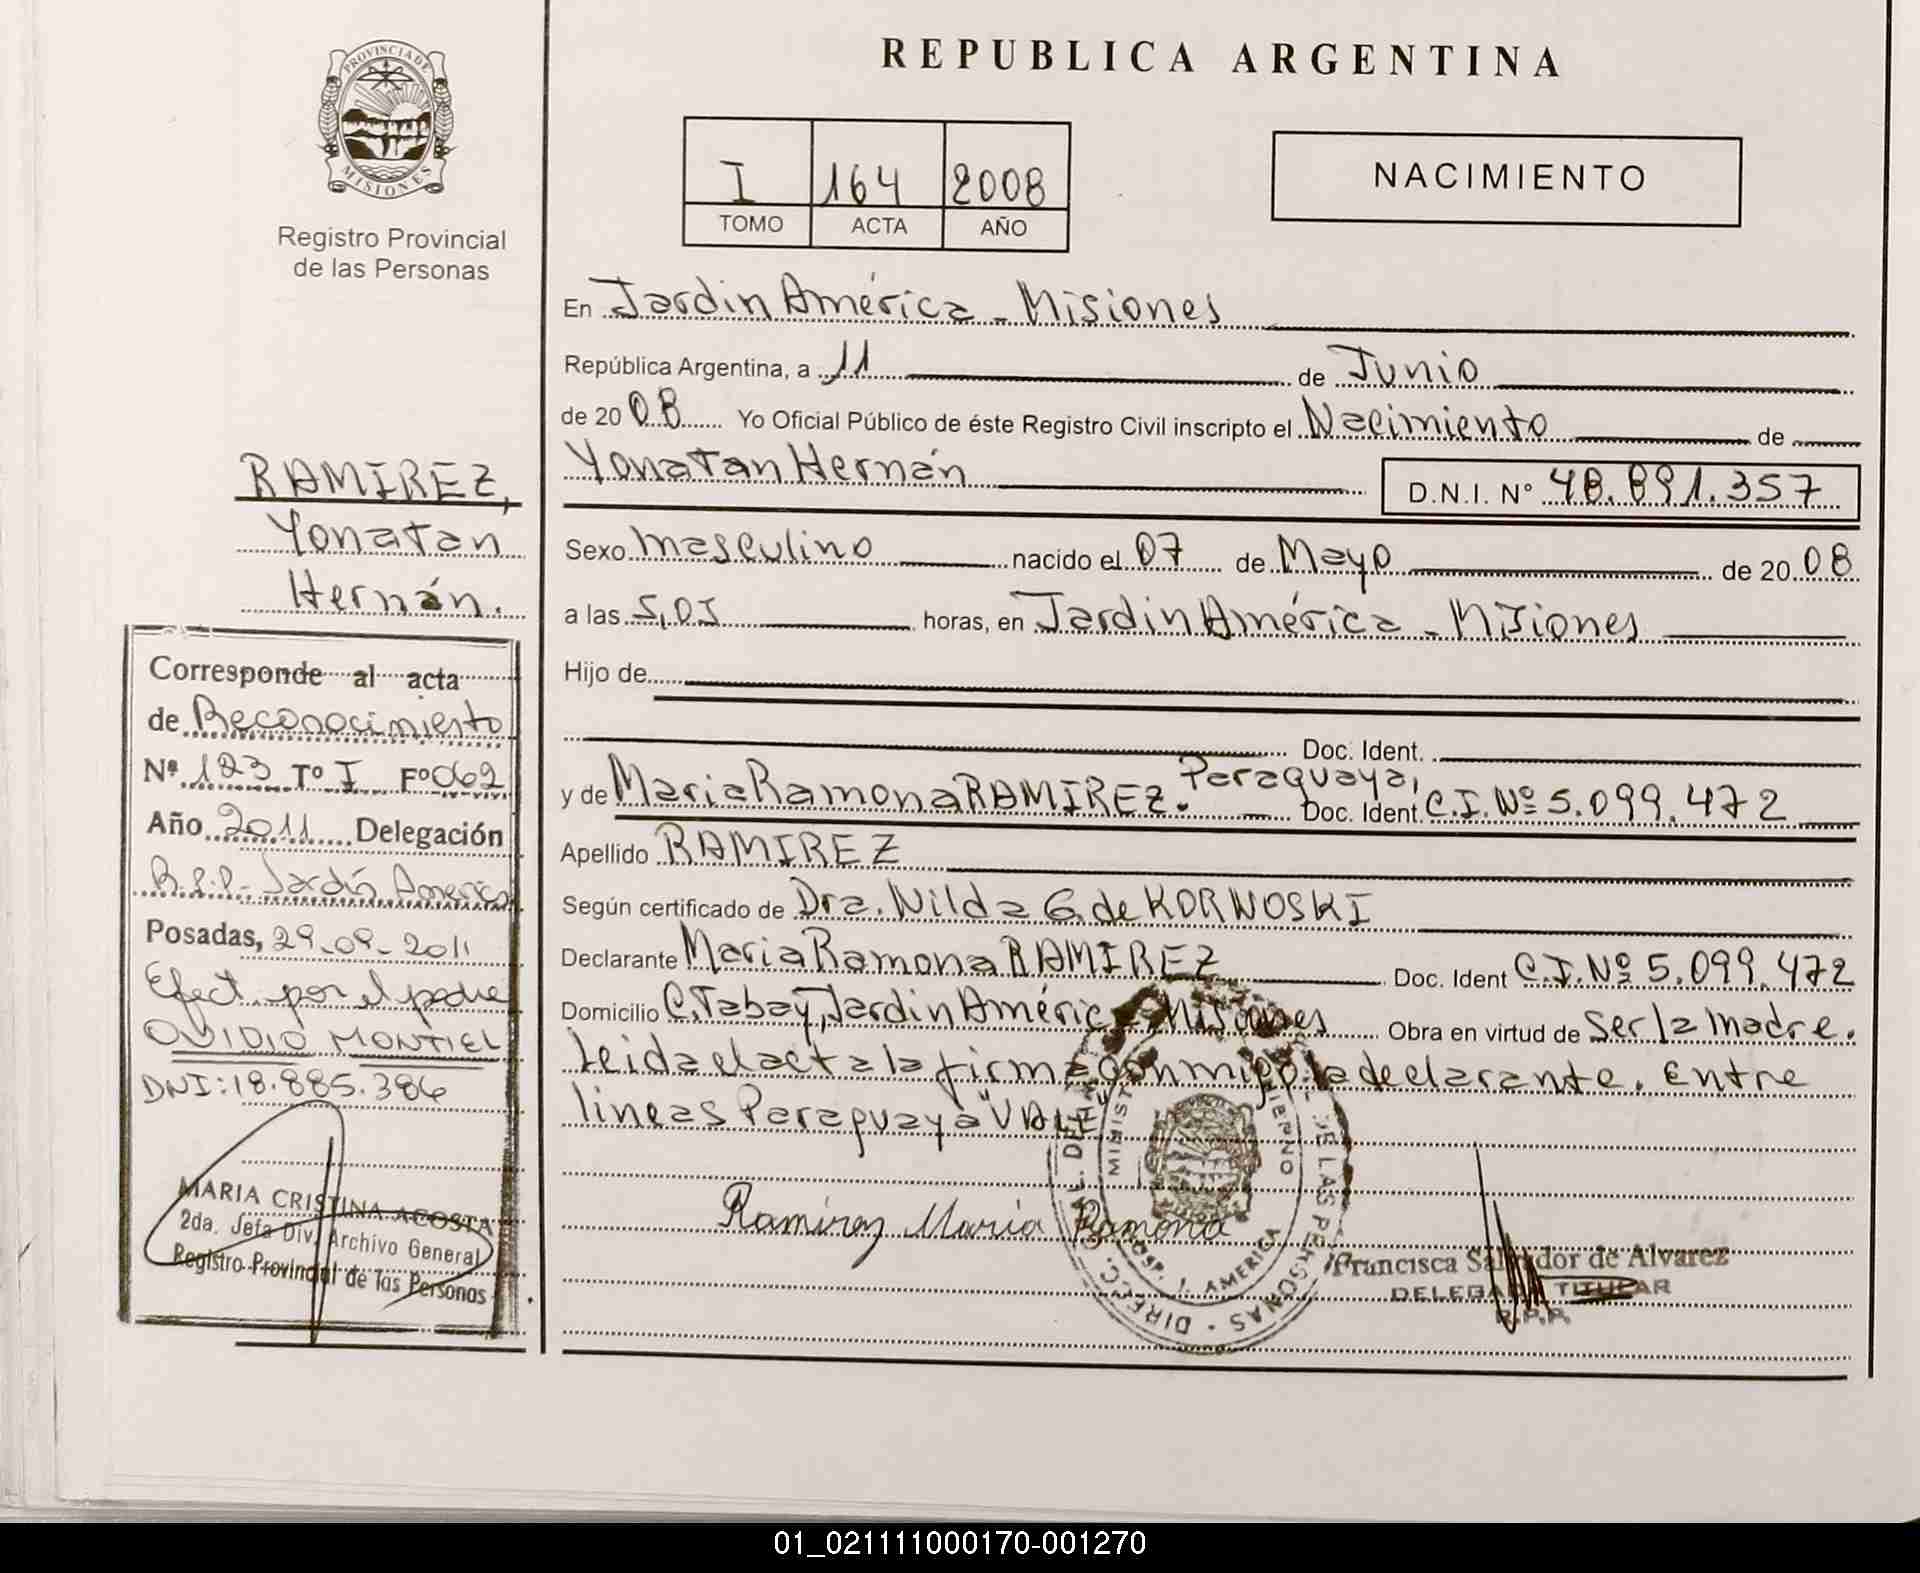 PROVINCIA DE
MISIONES
Registro Provincial
de las Personas
RAMIREZ,
Yonatan
Hernán.
Corresponde al acta
de Reconocimiento
Nº 123 Tº I Fº 062
Año 2011 Delegación
R.P.P. Jardín America
Posadas, 29-09-2011
Efect. por el padre
OVIDIO MONTIEL
DNI: 18.885.386
MARIA CRISTINA ACOSTA
2da. Jefa Div. Archivo General
Registro Provincial de las Personas
REPUBLICA ARGENTINA
I 164 2008
TOMO ACTA AÑO
NACIMIENTO
En Jardin América - Misiones
República Argentina, a 11 de Junio
de 2008 Yo Oficial Público de éste Registro Civil inscripto el Nacimiento de
Yonatan Hernán D.N.I. Nº 48.891.357
Sexo masculino nacido el 07 de Mayo de 2008
a las 5,05 horas, en Jardin América - Misiones
Hijo de
Doc. Ident.
Paraguaya,
y de Maria Ramona RAMIREZ. Doc. Ident. C.I. Nº 5.099.472
Apellido RAMIREZ
Según certificado de Dra. Nilda G. de KORNOSKI
Declarante Maria Ramona RAMIREZ Doc. Ident C.I. Nº 5.099.472
Domicilio C. Tabay, Jardin América - Misiones Obra en virtud de ser la madre.
Leida el acta la firma conmigo la declarante. Entre
lineas Paraguaya "VALE"
Ramirez Maria Ramona
Francisca Salvador de Alvarez
DELEGADA TITULAR
R.P.P.
01_021111000170-001270